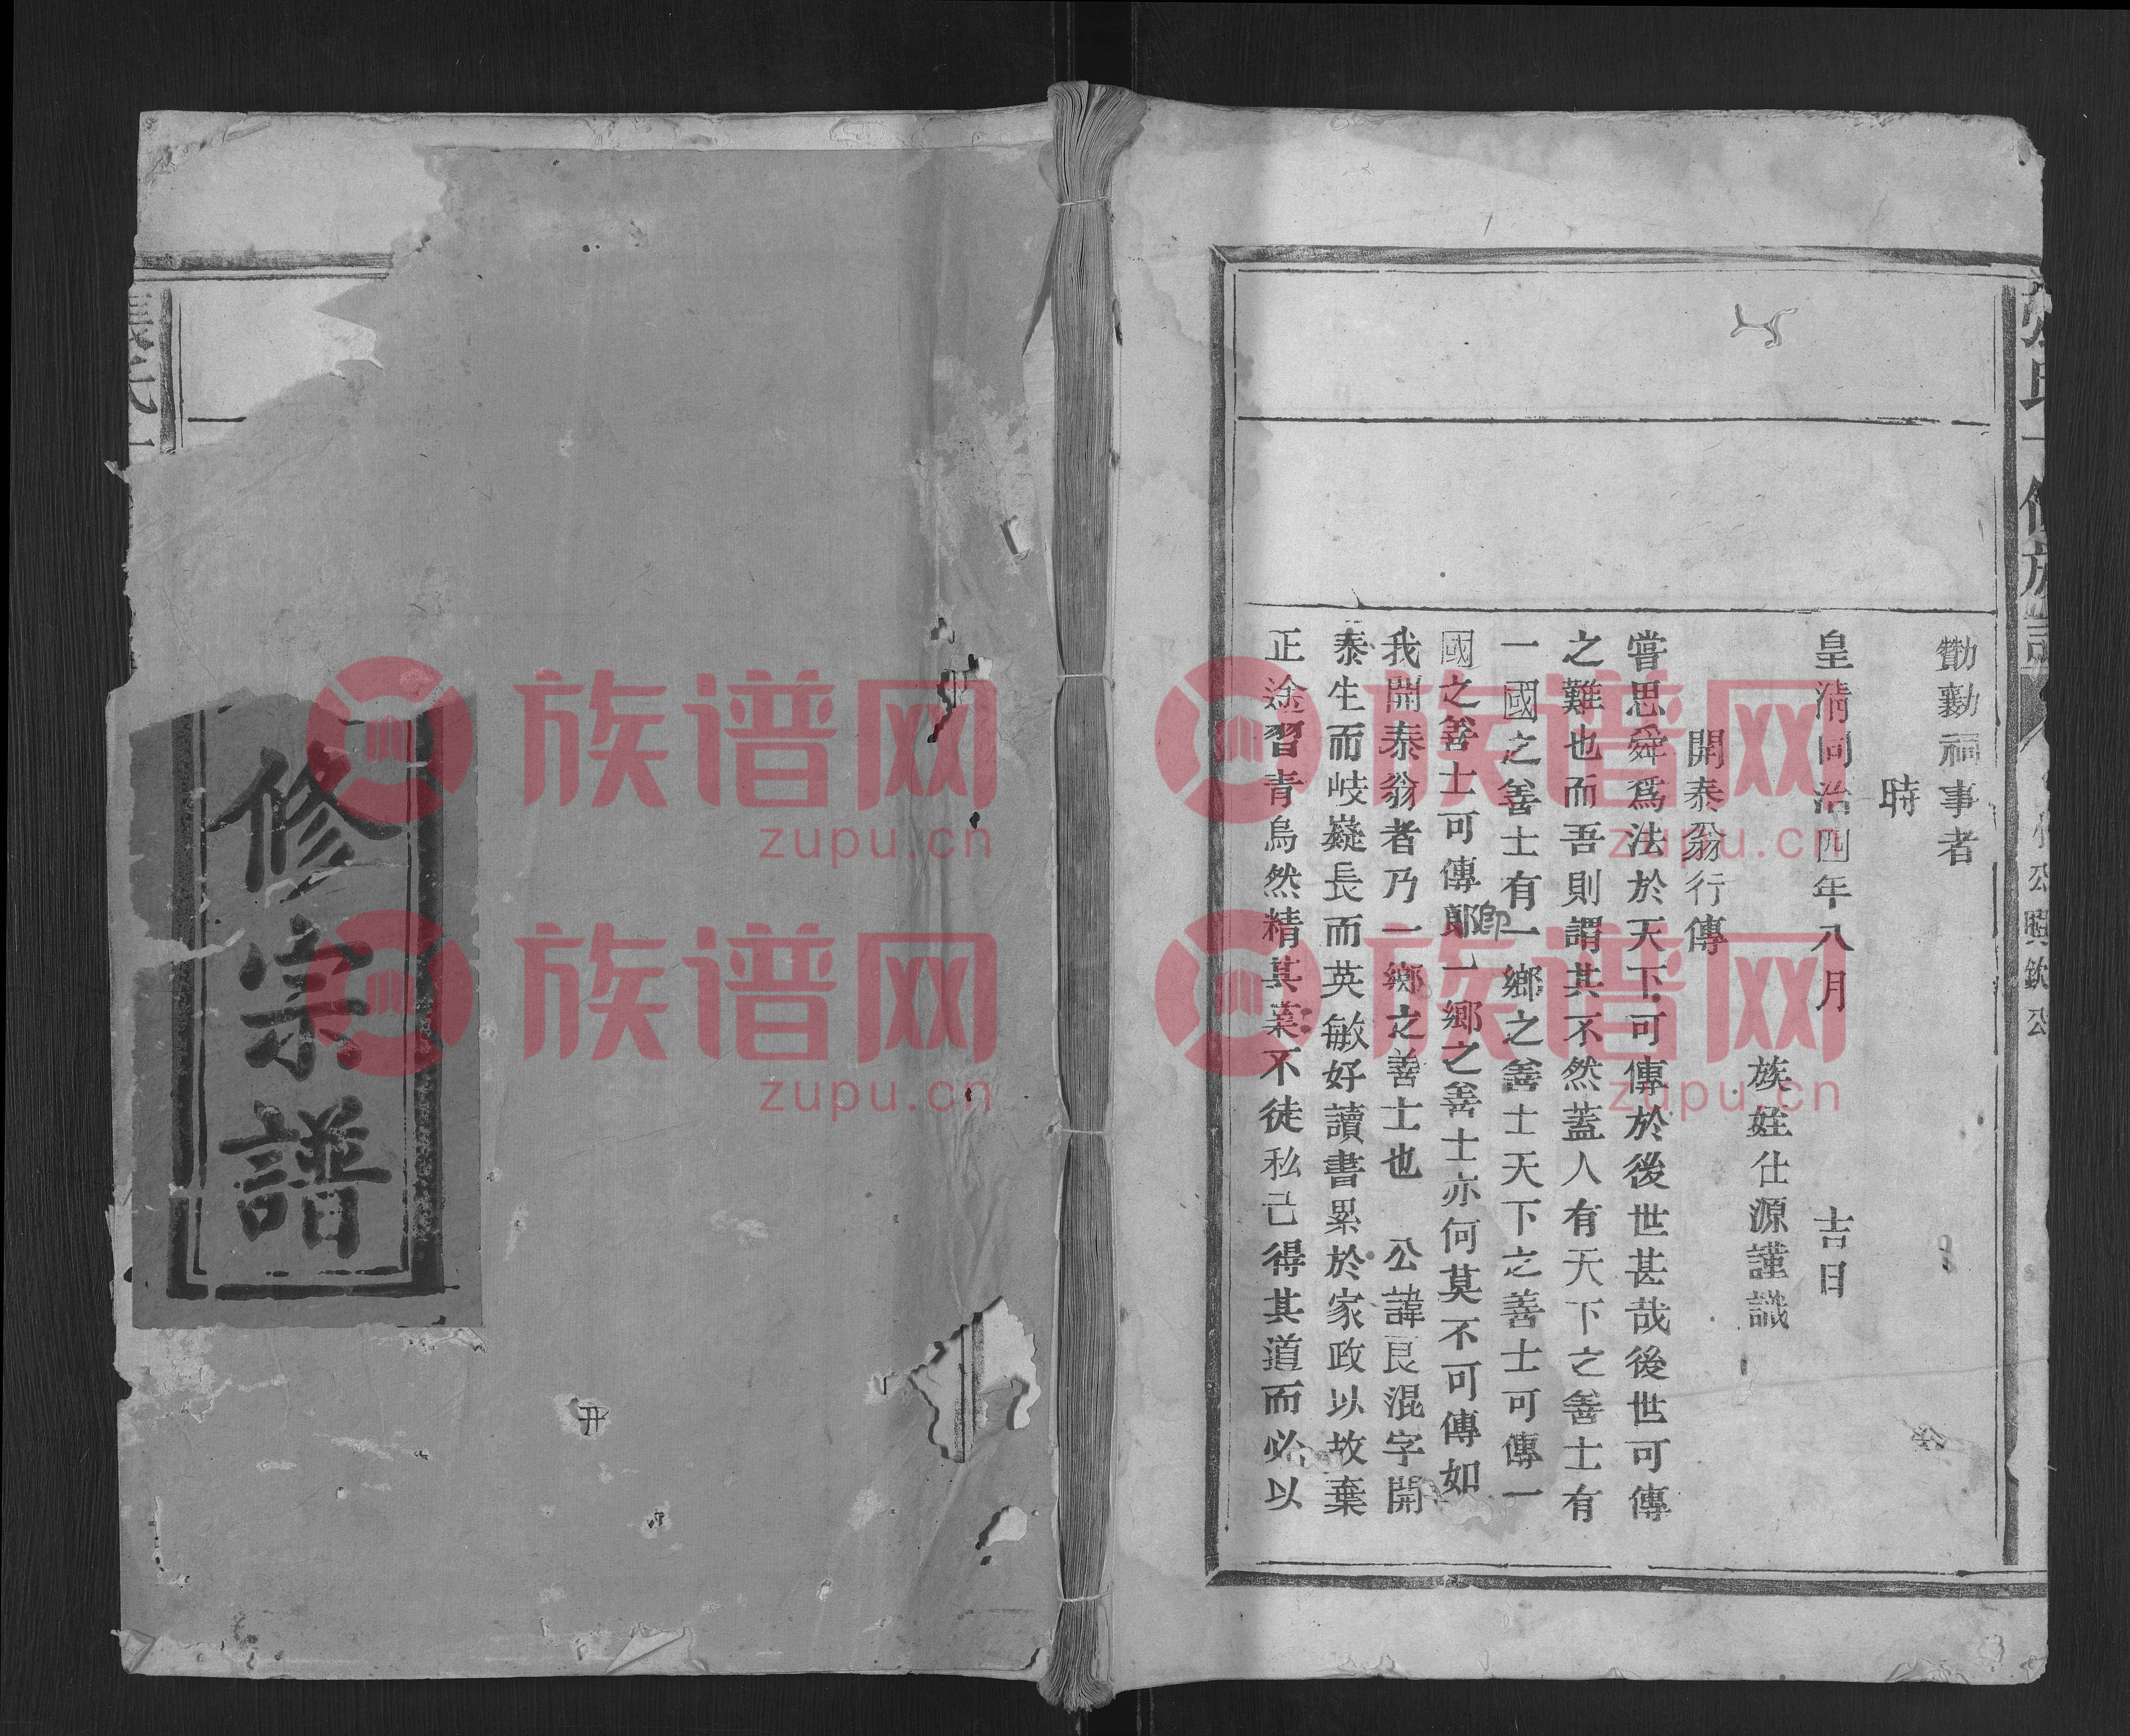 勷勷祠事者
時
皇清同治四年八月 吉日
族姪仕源謹識
開泰翁行傳
嘗思舜爲法於天下可傳於後世甚哉後世可傳
之難也而吾則謂其不然蓋人有天下之善士有
一國之善士有一鄉之善士天下之善士可傳一
國之善士可傳郎一鄉之善士亦何莫不可傳如
卽
我開泰翁者乃一鄉之善士也 公諱艮混字開
泰生而岐嶷長而英敏好讀書累於家政以故棄
正途習青烏然精其業不徒私己得其道而必以
公興欽公
修宗譜
族谱网
zupu.cn
族谱网
zupu.cn
族谱网
zupu.cn
族谱网
zupu.cn